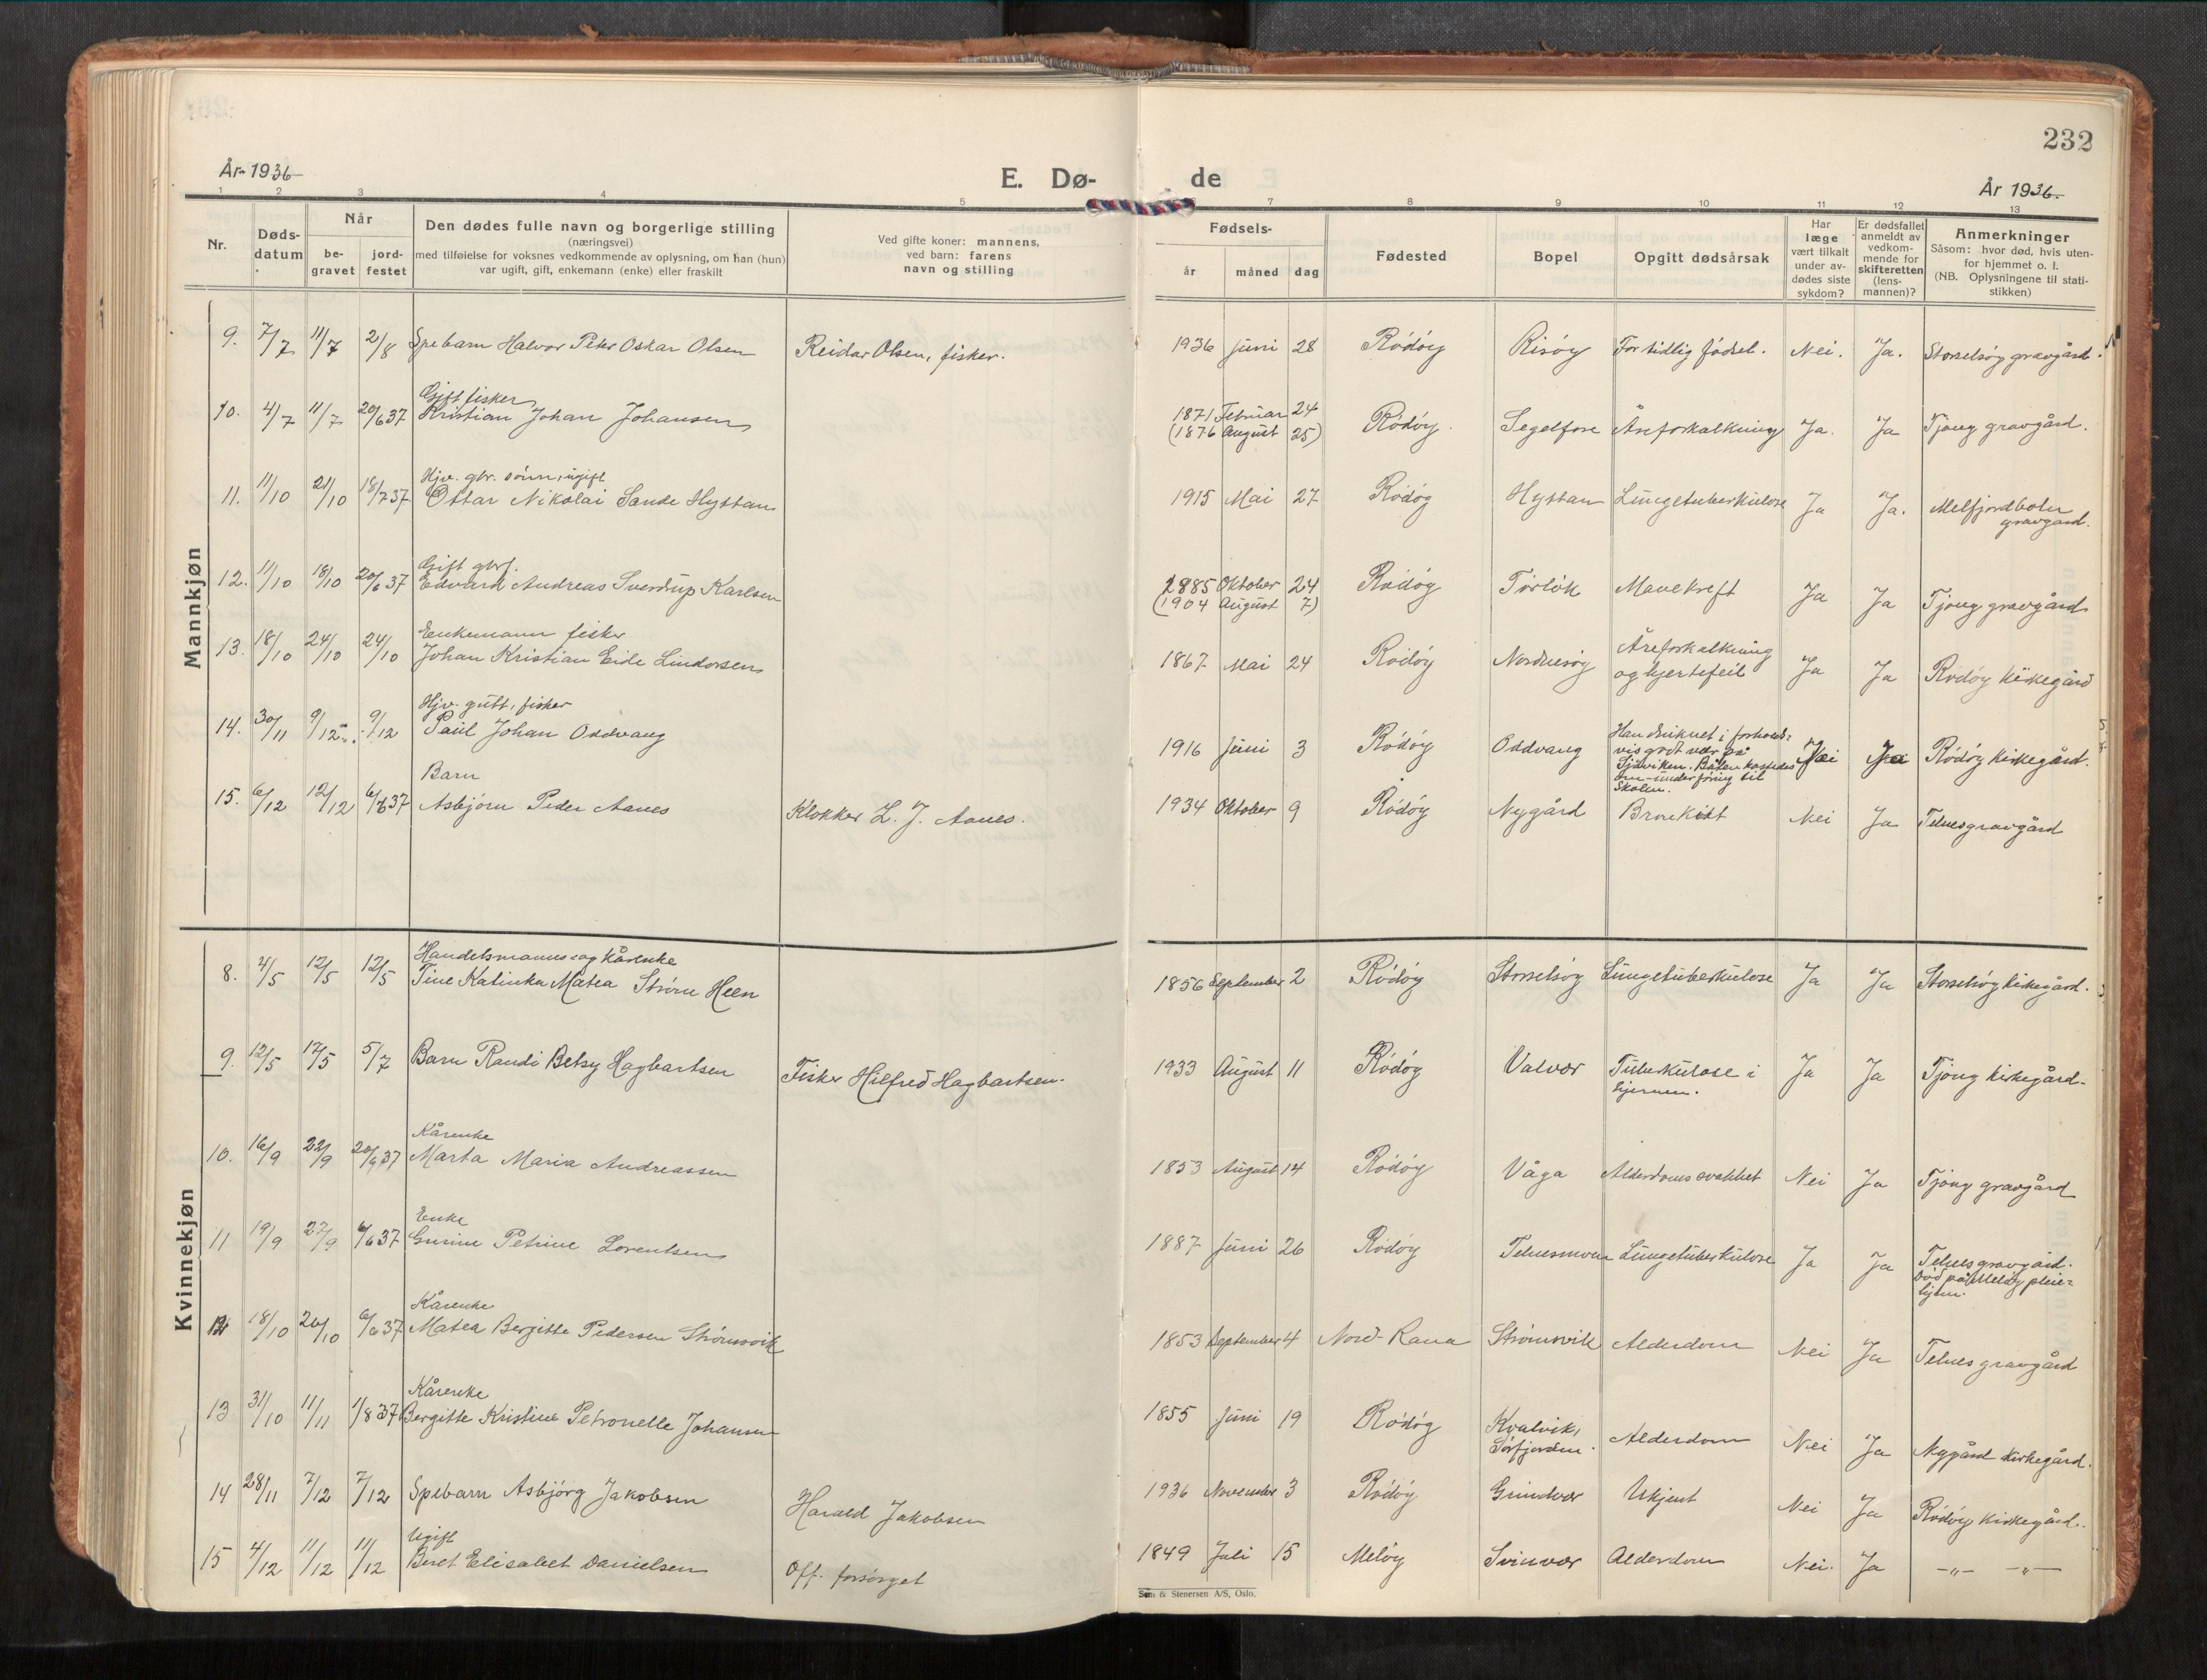 232
År 1936
E. Dø- de
År 1936.
1 2 3 4 5 6 7 8 9 10 11 12 13
Nr.
Døds-
datum
Når
be-
gravet
jord-
festet
Den dødes fulle navn og borgerlige stilling
(næringsvei)
med tilføielse for voksnes vedkommende av oplysning, om han (hun)
var ugift, gift, enkemann (enke) eller fraskilt
Ved gifte koner: mannens,
ved barn: farens
navn og stilling
Fødsels-
år måned dag
Fødested
Bopel
Opgitt dødsårsak
Har
læge
vært tilkalt
under av-
dødes siste
sykdom?
Er dødsfallet
anmeldt av
vedkom-
mende for
skifteretten
(lens-
mannen)?
Anmerkninger
Såsom: hvor død, hvis uten-
for hjemmet o. l.
(NB. Oplysningene til stati-
stikken)
Mannkjøn
9. 7/7 11/7 2/8 Spebarn Halvor Peter Oskar Olsen Reidar Olsen, fisker. 1936 Juni 28 Rödöy Risöy For tidlig födsel. Nei. Ja. Storselsöy gravgård.
Gift fisker
10. 4/7 11/7 20/6 37 Kristian Johan Johansen 1871 Februar 24 Rödöy. Segelfore Åreforkalkning Ja. Ja Tjong gravgård.
(1876 August 25)
Hjv. gbr. sönn, ugift
11. 11/10 21/10 18/7 37 Ottar Nikolai Sande Hystan 1915 Mai 27 Rödöy Hystan Lungetuberkulose Ja Ja. Melfjordboten
gravgård.
Gift gbrf.
12. 11/10 18/10 20/6 37 Edvard Andreas Sverdrup Karlsen 1885 Oktober 24 Rödöy Törlök Mavekreft Ja Ja Tjong gravgård
(1904 August 7)
Enkemann fisker
13. 18/10 24/10 24/10 Johan Kristian Eide Lindorsen 1867 Mai 24 Rödöy Nordnesöy Åreforkalkning
og hjertefeil Ja Ja Rödöy kirkegård
Hjv. gutt, fisker
14. 30/11 9/12 9/12 Paul Johan Oddvang 1916 Juni 3 Rödöy Oddvang Han druknet i forholds-
vis godt vær på
Sjövikren. Båten kastedes
om under föring til
Skolen. Nei Ja Rödöy kirkegård.
Barn
15. 6/12 12/12 6/6 37 Asbjörn Peder Aanes Klokker L. J. Aanes. 1934 Oktober 9 Rödöy Nygård Bronkitt Nei Ja Telnes gravgård
Kvinnekjøn
Handelsmanns og kårenke
8. 4/5 12/5 12/5 Tine Katinka Matea Ström Heen 1856 September 2 Rödöy Storselsöy Lungetuberkulose Ja Ja Storselsöy kirkegård.
9. 12/5 17/5 5/7 Barn Randi Betsy Hagbartsen Fisker Hilfred Hagbartsen. 1933 August 11 Rödöy Valvær Tuberkulose i
hjernen. Ja Ja Tjong kirkegård.
Kårenke
10. 16/9 22/9 20/6 37 Marta Maria Andreassen 1853 August 14 Rödöy Våga Alderdomssvakhet Nei Ja Tjong gravgård
Enke
11 19/9 27/9 6/6 37 Gurine Petrine Lorentsen 1887 Juni 26 Rödöy Telnesmoen Lungetuberkulose Ja Ja Telnes gravgård.
Död på Melöy pleie-
hjem.
Kårenke
12 18/10 26/10 6/6 37 Matea Bergitte Pedersen Strömsvik 1853 September 4 Nord-Rana Strömsvik Alderdom Nei Ja Telnes gravgård
Kårenke
13 31/10 11/11 1/8 37 Bergitte Kristine Petronelle Johansen 1855 Juni 19 Rödöy Kvalvik,
Sörfjorden. Alderdom Nei Ja Nygård kirkegård.
14 28/11 7/12 7/12 Spebarn Asbjörg Jakobsen Harald Jakobsen 1936 November 3 Rödöy Grindvær Ukjent Nei Ja Rödöy kirkegård.
Ugift
15 4/12 11/12 11/12 Beret Elisabet Danielsen Off. forsörget 1849 Juli 15 Melöy Svinvær Alderdom Nei. Ja —„— —„—
Sem & Stenersen A/S, Oslo.